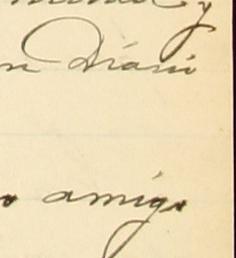 y
n Diario
o amigo